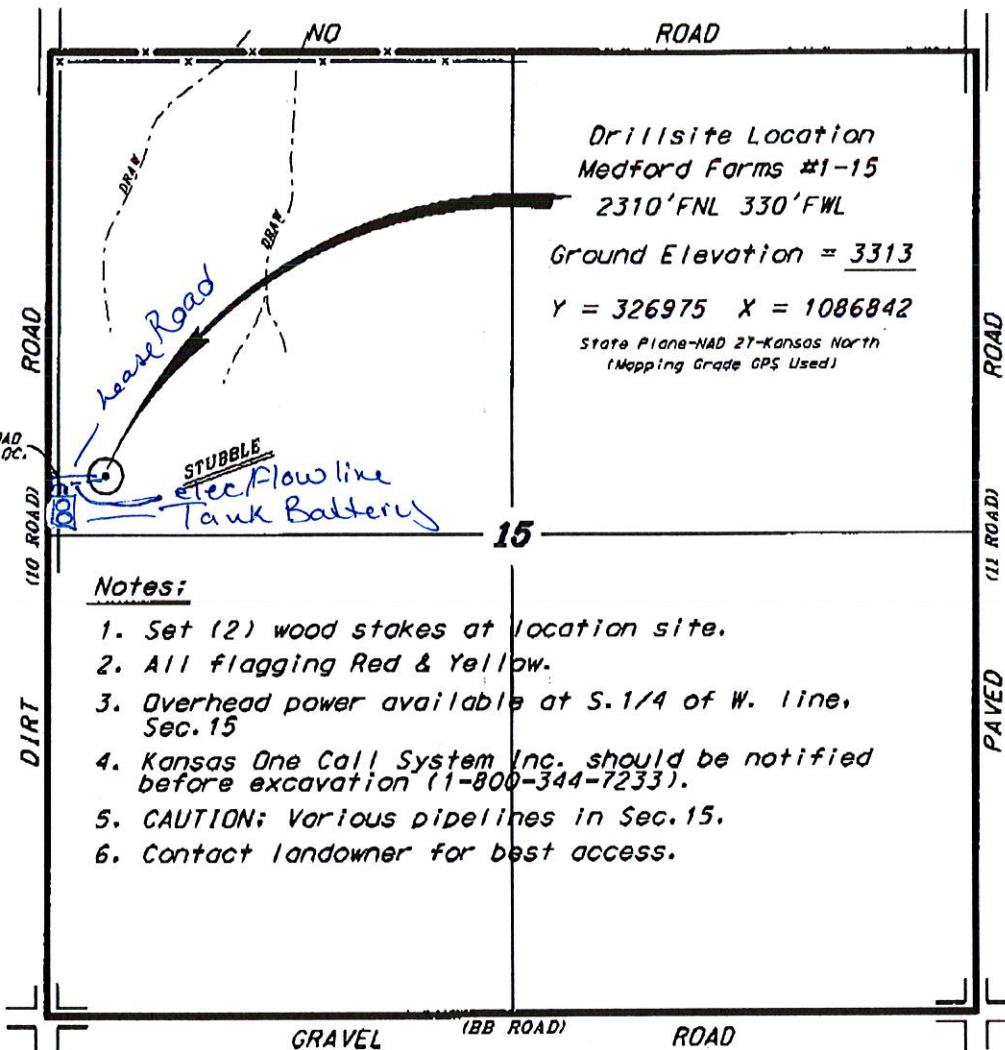 NO ROAD
Drillsite Location
Medford Farms #1-15
2310'FNL 330'FWL
Ground Elevation = 3313
Y = 326975 X = 1086842
State Plane-NAD 27-Kansas North
(Mapping Grade GPS Used)
DRAW
DRAW
lease Road
ROAD
ROAD
STUBBLE
elec/Flow line
Tank Battery
(10 ROAD)
15
(11 ROAD)
Notes:
1. Set (2) wood stakes at location site.
2. All flagging Red & Yellow.
3. Overhead power available at S.1/4 of W. line,
Sec.15
4. Kansas One Call System Inc. should be notified
before excavation (1-800-344-7233).
5. CAUTION: Various pipelines in Sec.15.
6. Contact landowner for best access.
DIRT
PAVED
GRAVEL (BB ROAD) ROAD